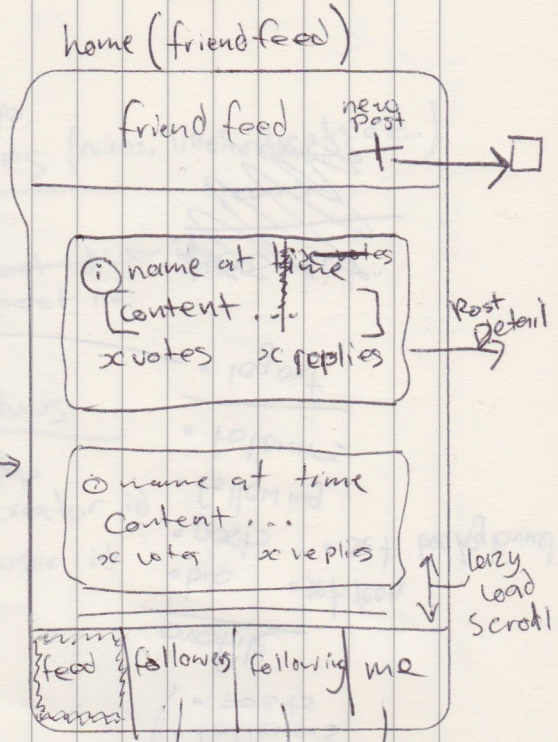 home (friendfeed)
friend feed
new
post
x votes
i name at time
[content ...]
x votes x replies
Post
Detail
name at time
Content ...
x votes x replies
lazy
load
scroll
feed followers following me